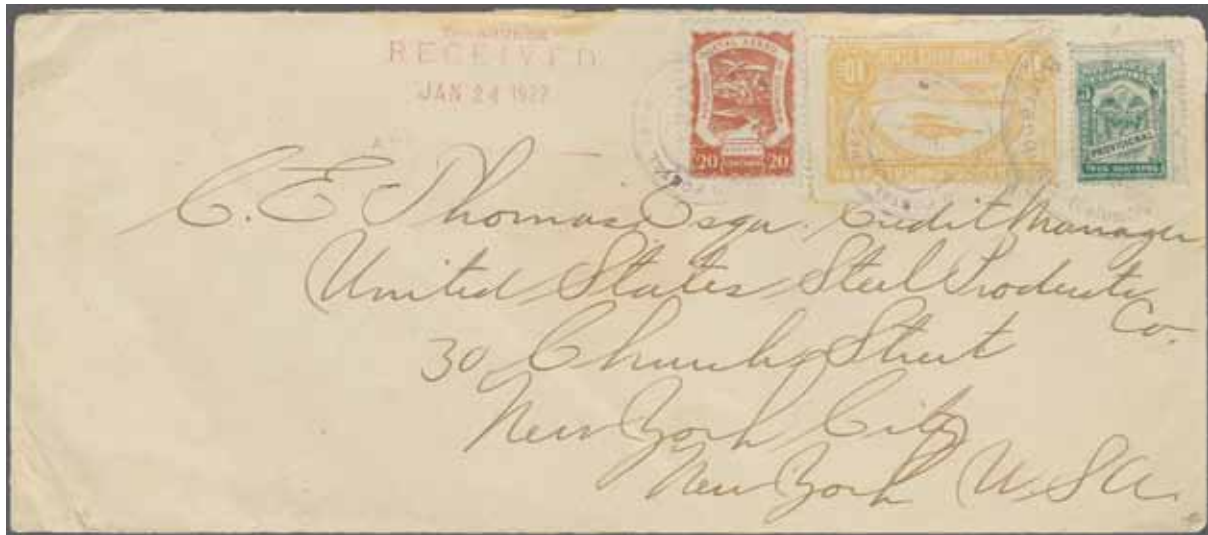 RECEIVED
JAN 24 1922
20 CENTAVOS 20
10
PROVISIONAL
C. E. Thomas Esqr. Credit Manager
United States Steel Products
Co.
30 Church Street
New York City
New York U.S.A.